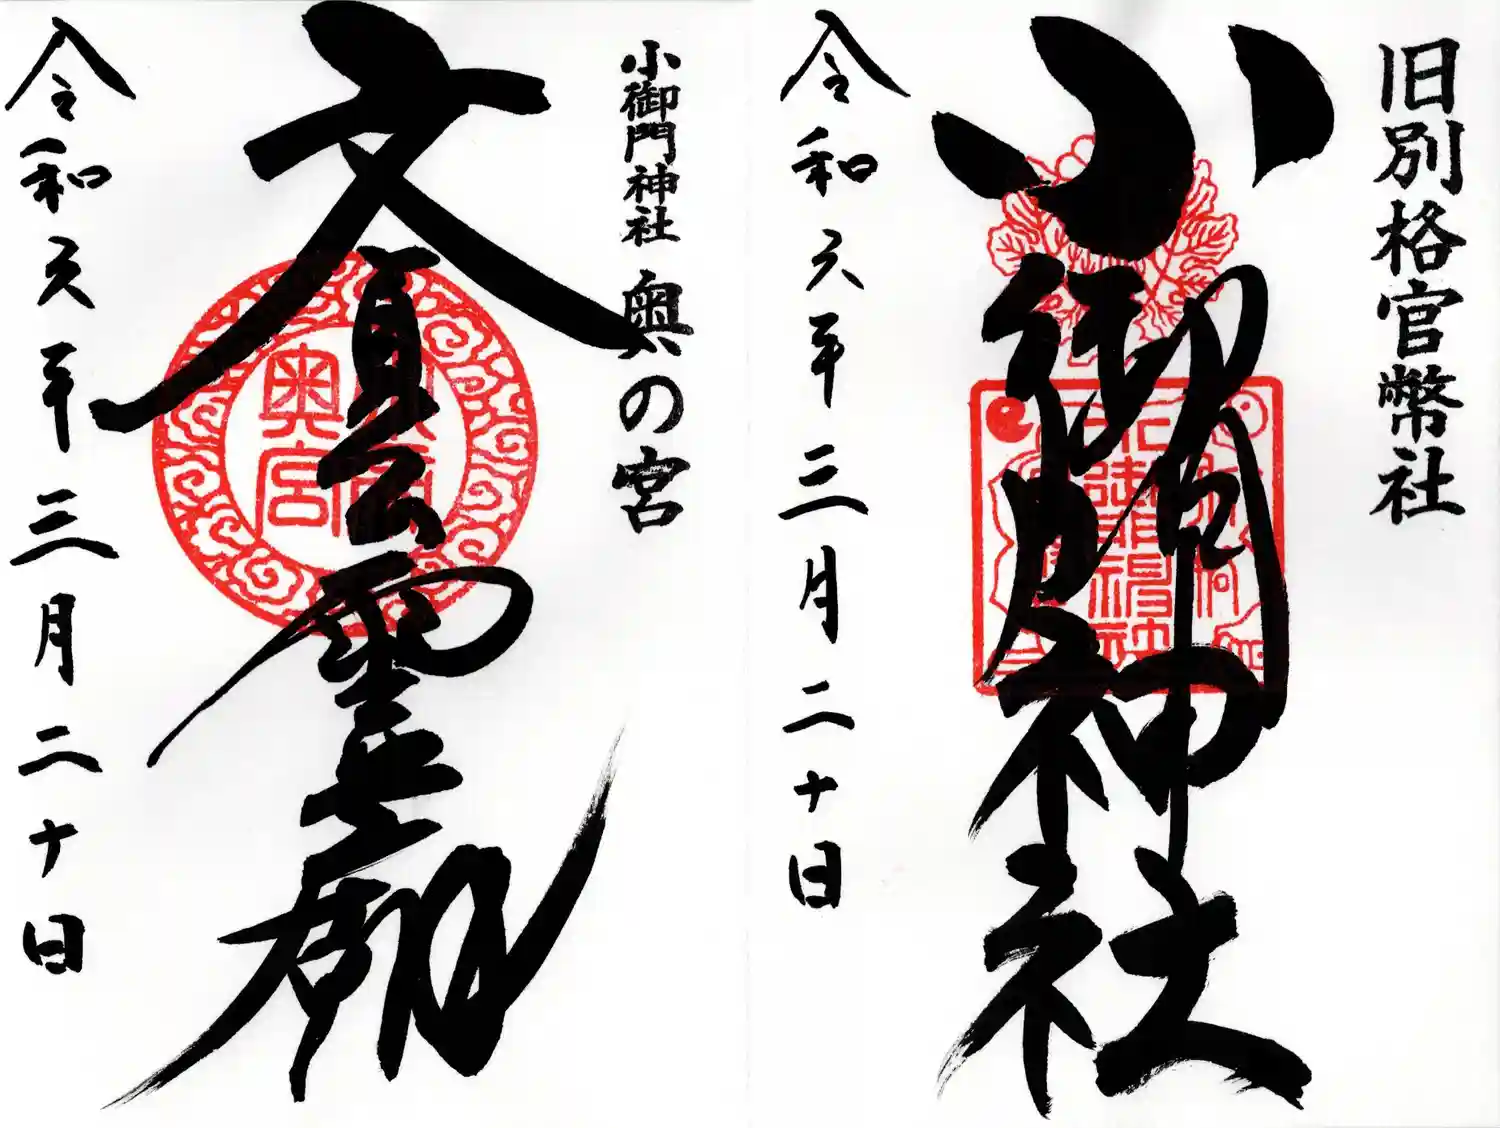 旧別格官幣社
小御門神社
令和六年三月二十日
小御門神社 奥の宮
文貞公靈廟
令和六年三月二十日
奥宮